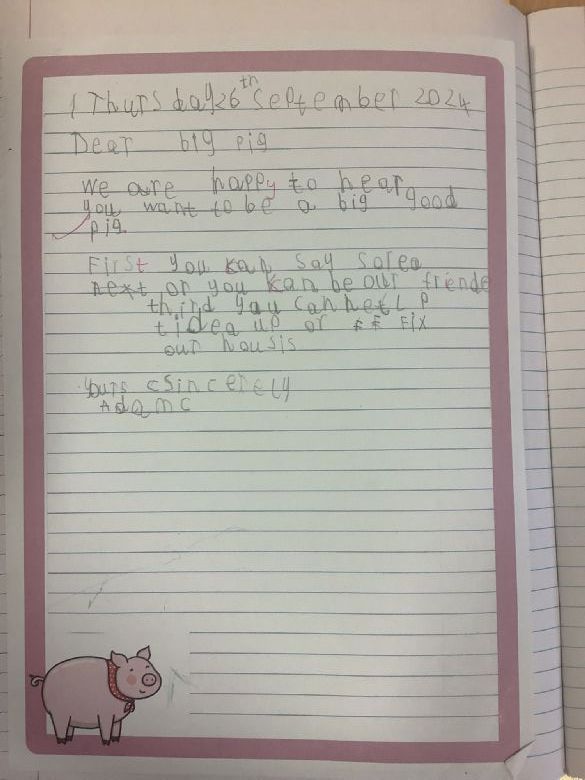 Thursday 26th September 2024
Dear big pig
We are happy to hear
you want to be a big good
pig.
First you kan say sorea
next or you kan be our friende
thind you can hetLp
tidea up or FF Fix
our housis
yours csincerely
Adam C